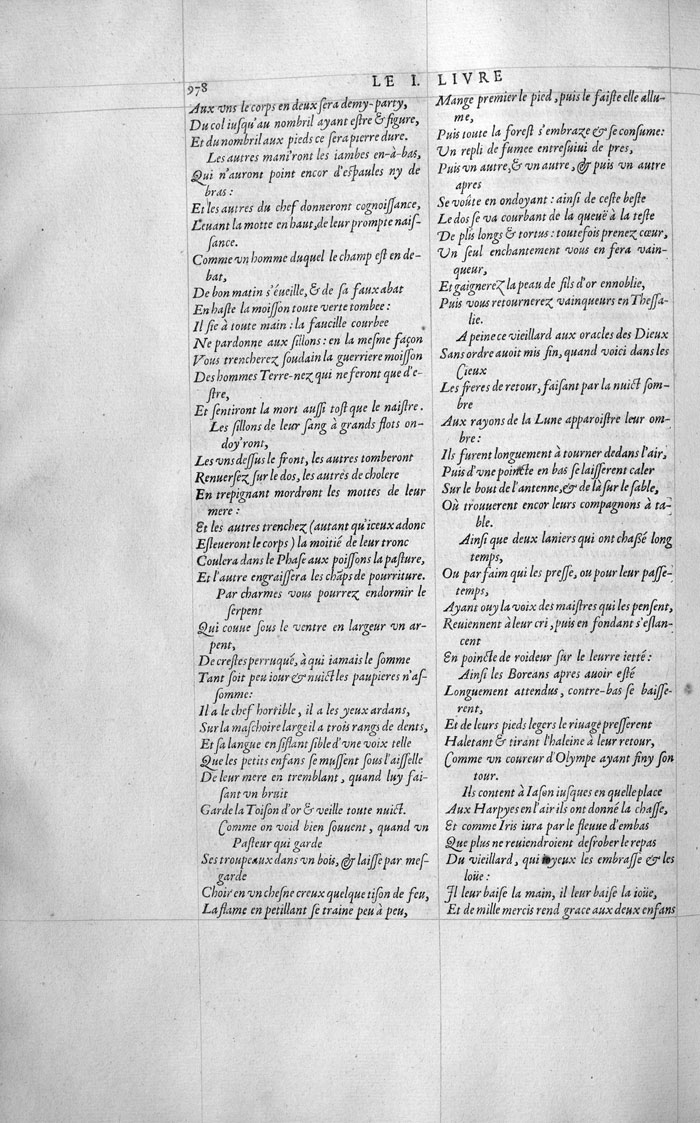 978
LE I. LIVRE
Aux vns le corps en deux sera demy-party,
Du col iusqu'au nombril ayant estre & figure,
Et du nombril aux pieds ce sera pierre dure.
Les autres mani'ront les iambes en-à-bas,
Qui n'auront point encor d'espaules ny de
bras:
Et les autres du chef donneront cognoissance,
Leuant la motte en haut, de leur prompte nais-
sance.
Comme vn homme duquel le champ est en de-
bat,
De bon matin s'éueille, & de sa faux abat
En haste la moisson toute verte tombee:
Il sie à toute main: la faucille courbee
Ne pardonne aux sillons: en la mesme façon
Vous trencherez soudain la guerriere moisson
Des hommes Terre-nez qui ne feront que d'e-
stre,
Et sentiront la mort aussi tost que le naistre.
Les sillons de leur sang à grands flots on-
doy'ront,
Les vns dessus le front, les autres tomberont
Renuersez sur le dos, les autres de cholere
En trepignant mordront les mottes de leur
mere:
Et les autres trenchez (autant qu'iceux adonc
Esleueront le corps) la moitié de leur tronc
Coulera dans le Phase aux poissons la pasture,
Et l'autre engraissera les chãps de pourriture.
Par charmes vous pourrez endormir le
serpent
Qui couue sous le ventre en largeur vn ar-
pent,
De crestes perruqué, à qui iamais le somme
Tant soit peu iour & nuict les paupieres n'as-
somme:
Il a le chef horrible, il a les yeux ardans,
Sur la maschoire large il a trois rangs de dents,
Et sa langue en siflant sible d'vne voix telle
Que les petits enfans se mussent sous l'aisselle
De leur mere en tremblant, quand luy fai-
sant vn bruit
Garde la Toison d'or & veille toute nuict.
Comme on void bien souuent, quand vn
Pasteur qui garde
Ses troupeaux dans vn bois, & laisse par mes-
garde
Choir en vn chesne creux quelque tison de feu,
La flame en petillant se traine peu à peu,
Mange premier le pied, puis le faiste elle allu-
me,
Puis toute la forest s'embraze & se consume:
Vn repli de fumee entresuiui de pres,
Puis vn autre, & vn autre, & puis vn autre
apres
Se voûte en ondoyant: ainsi de ceste beste
Le dos se va courbant de la queuë à la teste
De plis longs & tortus: toutefois prenez cœur,
Vn seul enchantement vous en fera vain-
queur,
Et gaignerez la peau de fils d'or ennoblie,
Puis vous retournerez vainqueurs en Thessa-
lie.
A peine ce vieillard aux oracles des Dieux
Sans ordre auoit mis fin, quand voici dans les
Cieux
Les freres de retour, faisant par la nuict som-
bre
Aux rayons de la Lune apparoistre leur om-
bre:
Ils furent longuement à tourner dedans l'air,
Puis d'vne poincte en bas se laisserent caler
Sur le bout de l'antenne, & de là sur le sable,
Où trouuerent encor leurs compagnons à ta-
ble.
Ainsi que deux laniers qui ont chaßé long
temps,
Ou par faim qui les presse, ou pour leur passe-
temps,
Ayant ouy la voix des maistres qui les pensent,
Reuiennent à leur cri, puis en fondant s'eslan-
cent
En poincte de roideur sur le leurre ietté:
Ainsi les Boreans apres auoir esté
Longuement attendus, contre-bas se baisse-
rent,
Et de leurs pieds legers le riuage presserent
Haletant & tirant l'haleine à leur retour,
Comme vn coureur d'Olympe ayant finy son
tour.
Ils content à Iason iusques en quelle place
Aux Harpyes en l'air ils ont donné la chasse,
Et comme Iris iura par le fleuue d'embas
Que plus ne reuiendroient desrober le repas
Du vieillard, qui ioyeux les embrasse & les
loüe:
Il leur baise la main, il leur baise la ioüe,
Et de mille mercis rend grace aux deux enfans